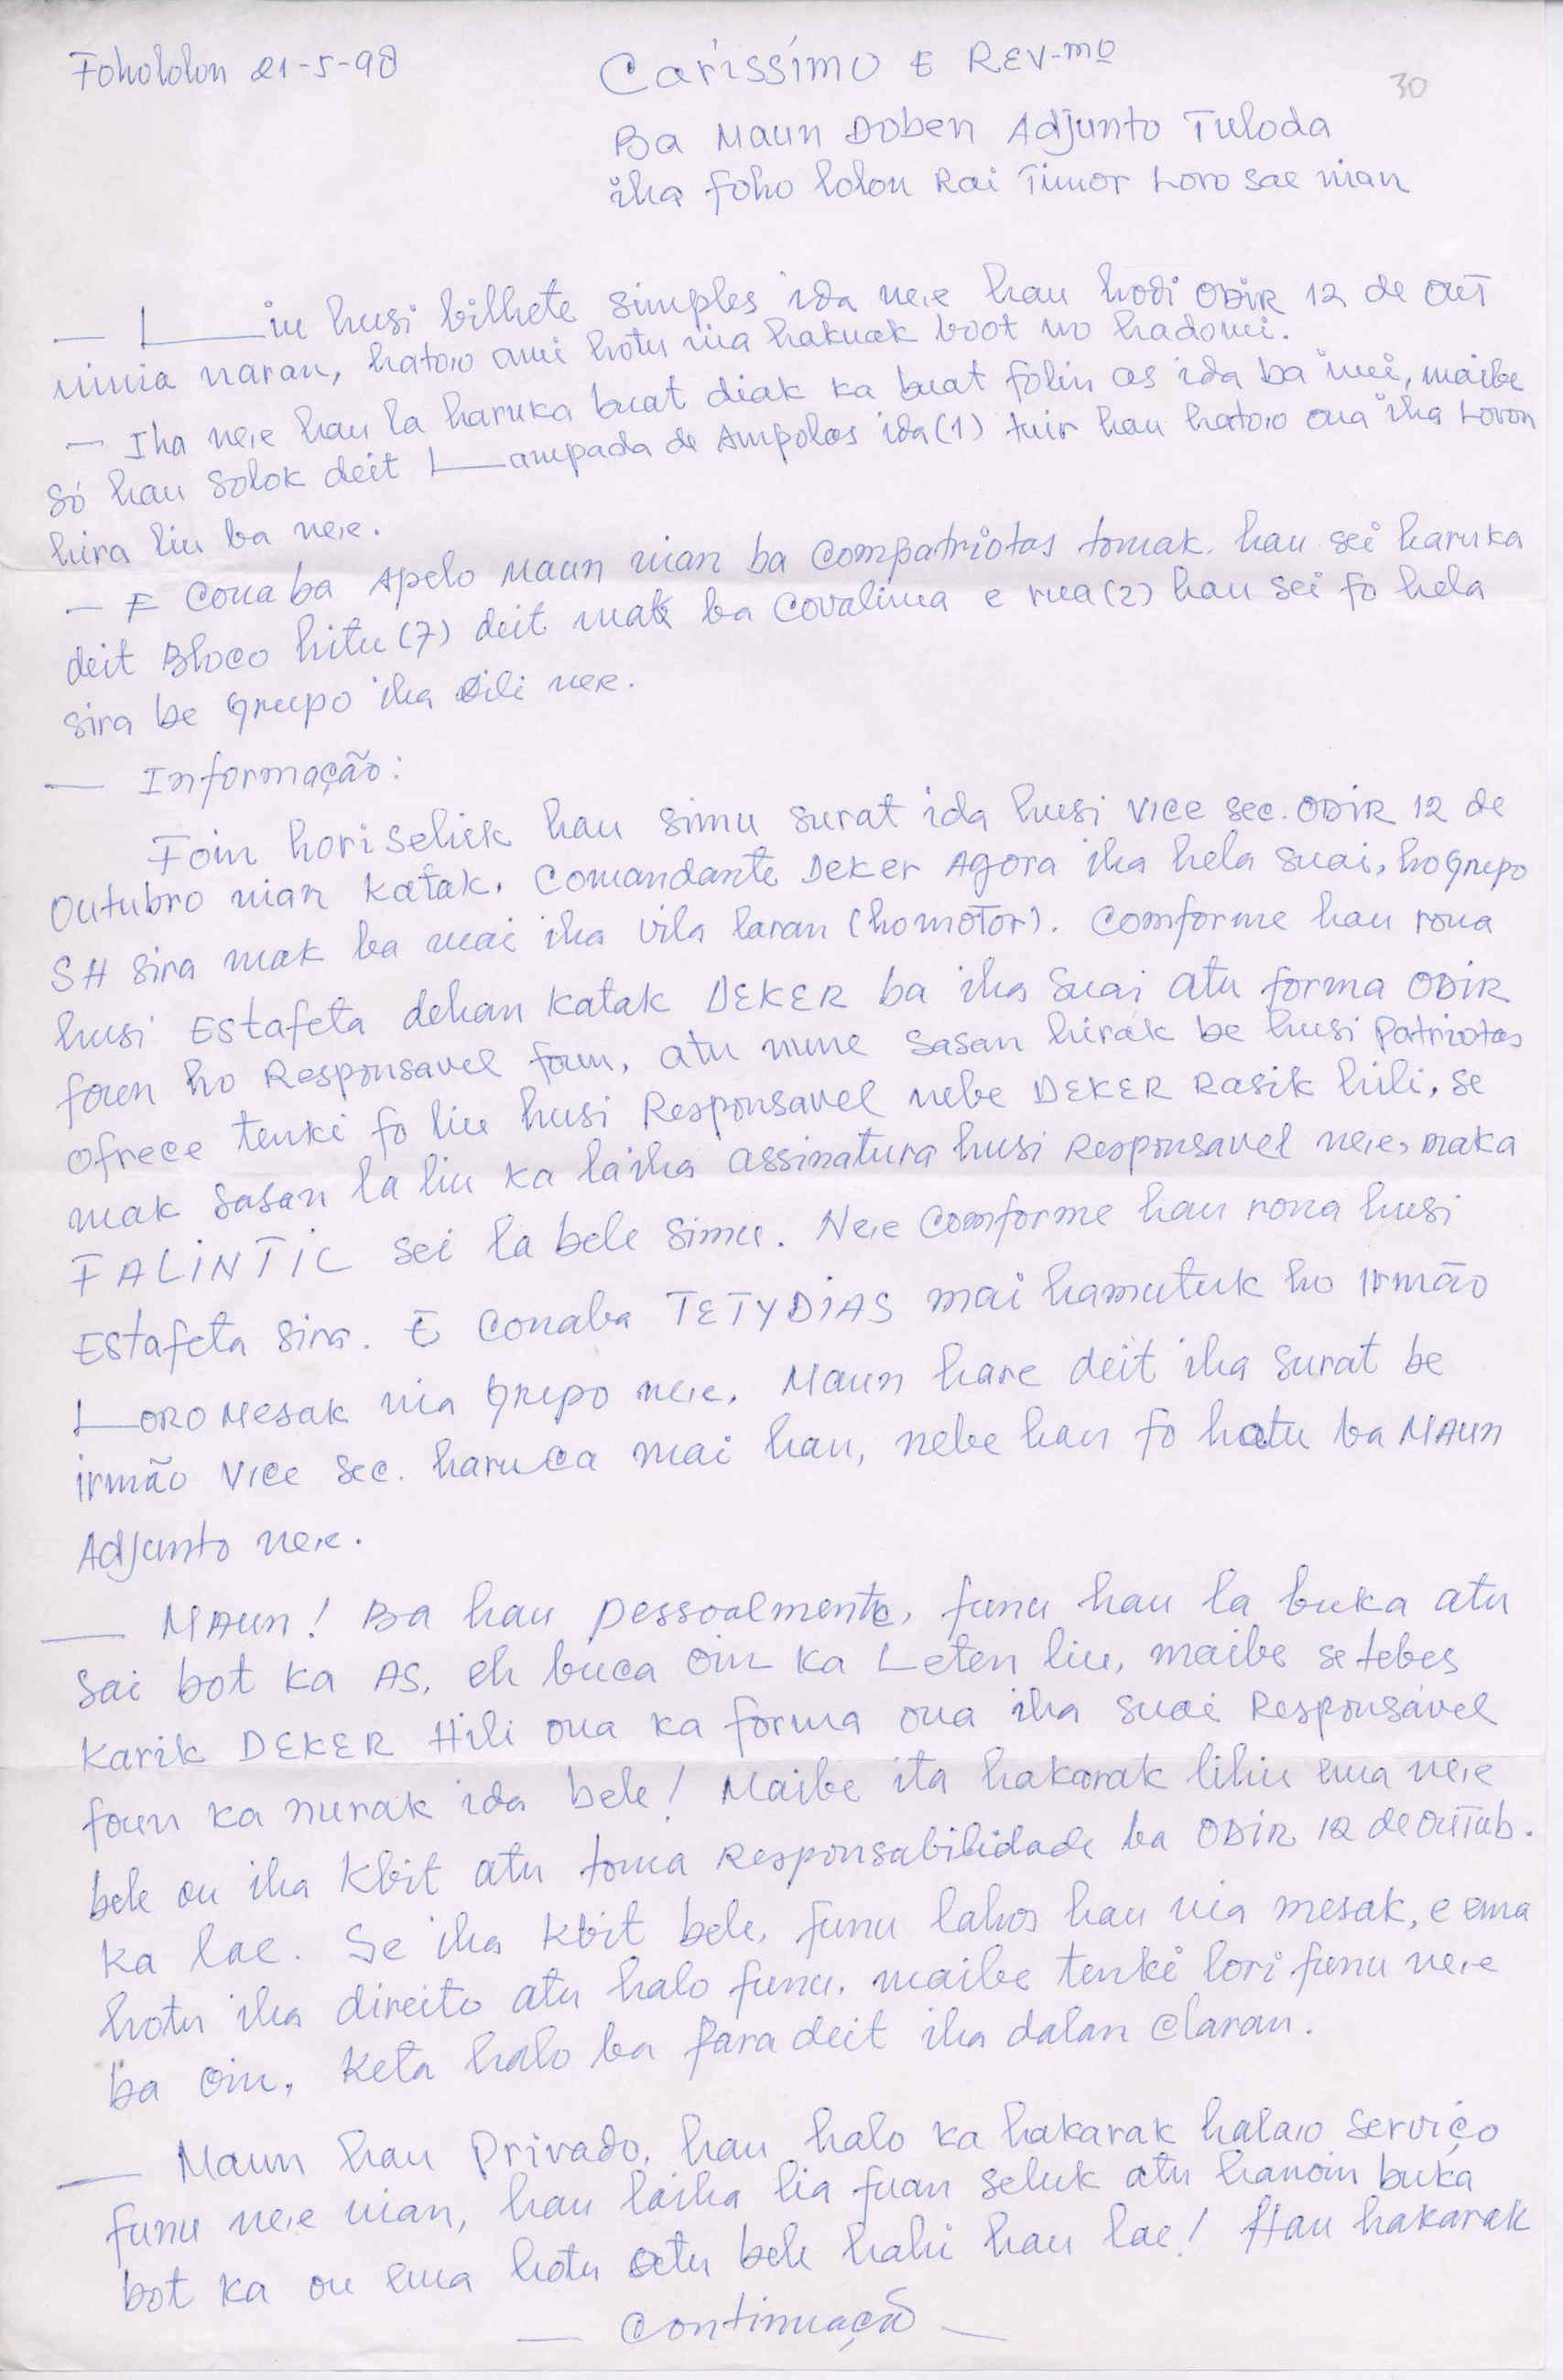 Foholólon 21-5-98
Caríssímo E REV-mo
30
Ba Maun Doben Adjunto Tuloda
iha foho lolon Rai Timor Loro sae nian
— Liu husi bilhete simples ida ne,e hau hodi ODIR 12 de OUT
ninia naran, hato,o ami hotu nia hakuak boot no hadomi.
— Iha ne,e hau la haruka buat diak ka buat folin as ida ba imi, maibe
Só hau solok deit Lampada de Ampolas ida (1) tuir hau hato,o ona iha Loron
hira liu ba ne,e.
— E Cona ba Apelo Maun nian ba Compatriotas tomak. hau sei haruka
deit Bloco hitu (7) deit mak ba Covalima e rua (2) hau sei fo hela
sira be Grupo iha Dili nee.
— Informação:
Foin horiseliek hau simu surat ida husi Vice sec. ODIR 12 de
Outubro nian katak. Comandante Deker Agora iha hela suai, ho Grupo
SH sira mak ba mai iha vila laran (ho motor). Comforme hau rona
husi Estafeta dehan katak DEKER ba iha Suai atu forma ODIR
foun ho Responsavel foun, atu nune sasan hirak be husi Patriotas
ofrece tenki fo liu husi Responsavel nebe DEKER Rasik hili, se
mak sasan la liu ka la iha assinatura husi Responsavel ne,e, maka
FALINTIL sei la bele simu. Ne,e Comforme hau rona husi
Estafeta sira. E Conaba TETYDIAS mai hamutuk ho irmão
LORO Mesak nia Grupo ne,e. Maun hare deit iha surat be
irmão Vice Sec. haruca mai hau, nebe hau fo hatu ba MAUN
Adjunto ne,e.
— MAUN! Ba hau pessoalmente, funu hau la buka atu
sai bot ka AS, eh buca oin ka Leten liu, maibe se tebes
Karik DEKER Hili ona ka forma ona iha suai Responsável
foun ka nurak ida bele! Maibe ita hakarak lihu ema ne,e
bele ou iha Kbit atu toma Responsabilidade ba ODIR 12 de OUTub.
ka lae. Se iha Kbit bele, funu lahos hau nia mesak, e ema
hotu iha direito atu halo funu, maibe tenki lori funu ne,e
ba oin, Keta halo ba para deit iha dalan claran.
— Maun hau Privado, hau halo ka hakarak hala,o serviço
funu ne,e nian, hau laiha lia fuan seluk atu hanoin buka
bot ka ou ema hotu atu bele hahi hau lae! Hau hakarak
— Continuação —